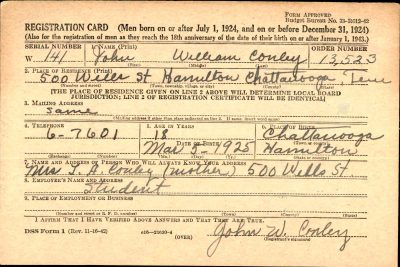 FORM APPROVED
Budget Bureau No. 33-R012-42
REGISTRATION CARD—(Men born on or after July 1, 1924, and on or before December 31, 1924)
(Also for the registration of men as they reach the 18th anniversary of the date of their birth on or after January 1, 1943.)
SERIAL NUMBER 1. NAME (Print) ORDER NUMBER
W 141 John William Conley 13,523
(First) (Middle) (Last)
2. PLACE OF RESIDENCE (Print)
500 Wells St Hamilton Chattanooga Tenn
(Number and street) (Town, township, village, or city) (County) (State)
[THE PLACE OF RESIDENCE GIVEN ON LINE 2 ABOVE WILL DETERMINE LOCAL BOARD
JURISDICTION; LINE 2 OF REGISTRATION CERTIFICATE WILL BE IDENTICAL]
3. MAILING ADDRESS
Same
[Mailing address if other than place indicated on line 2. If same, insert word same]
4. TELEPHONE 5. AGE IN YEARS 6. PLACE OF BIRTH
6-7601 18 Chattanooga
DATE OF BIRTH (Town or county)
Mar 5 - 1925 Hamilton
(Exchange) (Number) (Mo.) (Day) (Yr.) (State or country)
7. NAME AND ADDRESS OF PERSON WHO WILL ALWAYS KNOW YOUR ADDRESS
Mrs. J. A. Conley (mother) 500 Wells St.
8. EMPLOYER'S NAME AND ADDRESS
Student
9. PLACE OF EMPLOYMENT OR BUSINESS
(Number and street or R. F. D. number) (Town) (County) (State)
I AFFIRM THAT I HAVE VERIFIED ABOVE ANSWERS AND THAT THEY ARE TRUE.
DSS Form 1 (Rev. 11-16-42) (OVER) John W. Conley
(Registrant's signature)